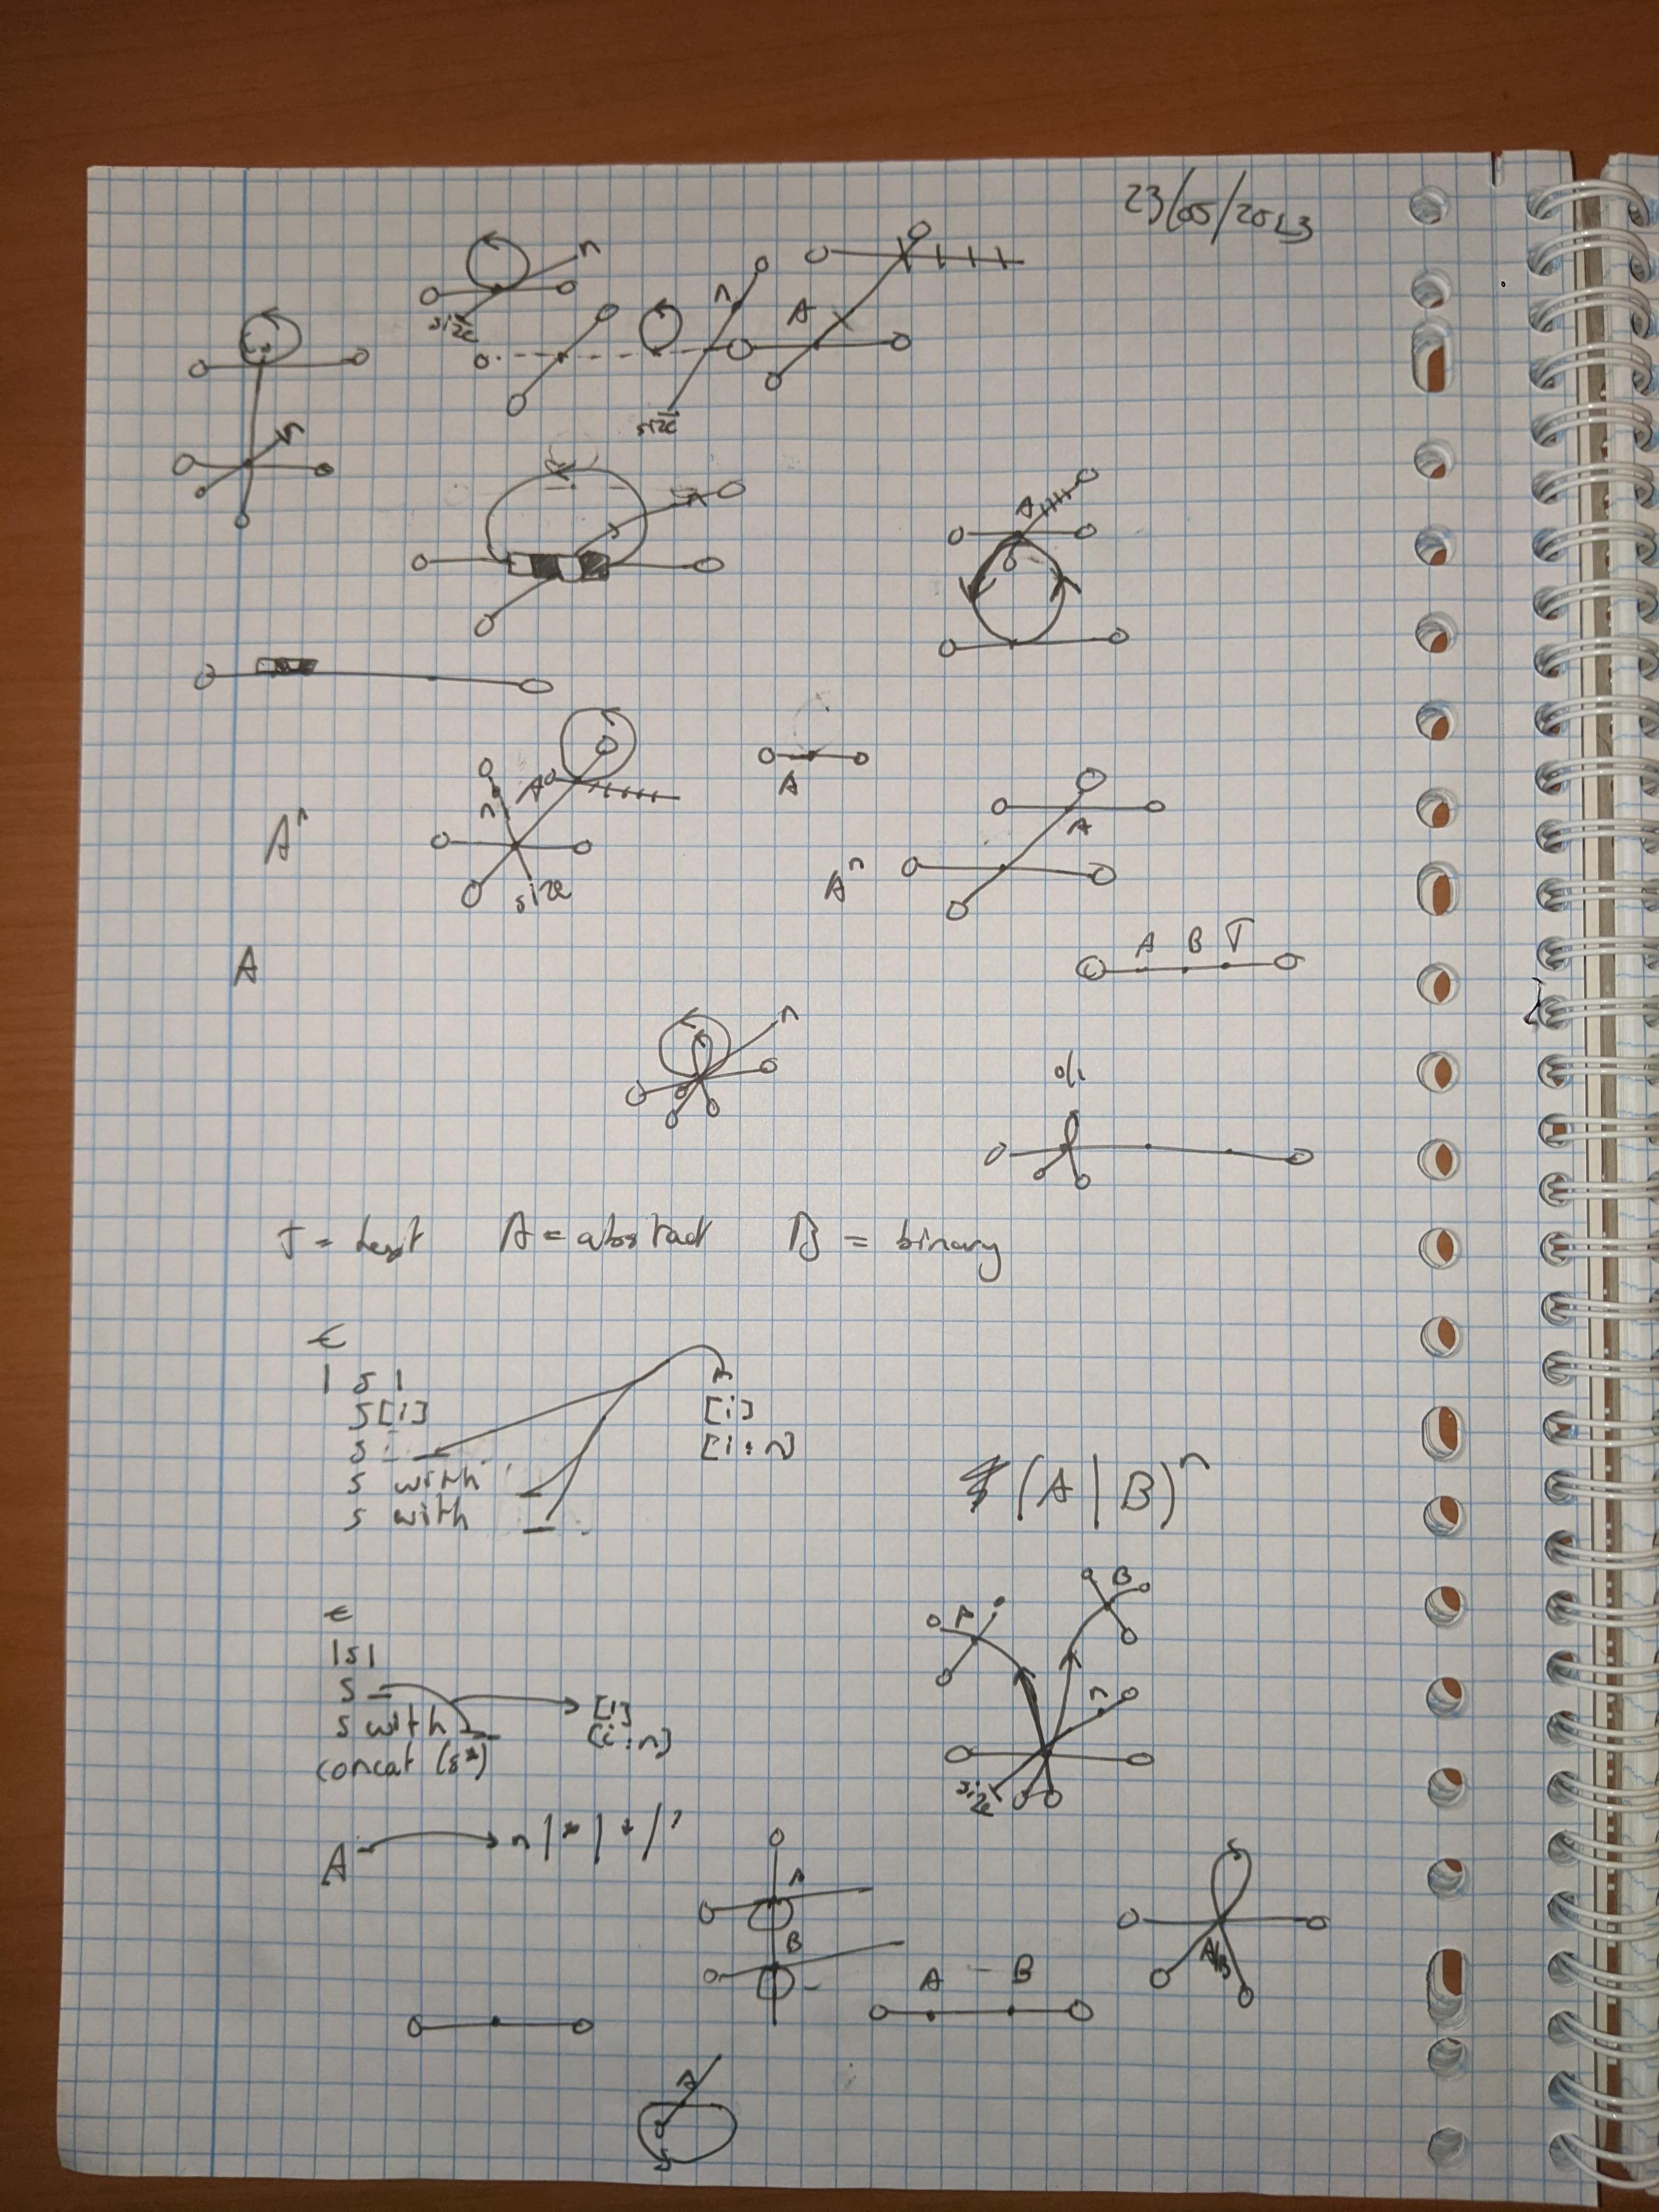 23/05/2023
n
size
n
size
A
n
A
A
n
size
A
Aⁿ
Aⁿ
A
A B T
A
n
0/1
T = text A = abstract B = binary
ϵ
| s |
s[i]
s
s with
s with
[i]
[i:n]
(A|B)ⁿ
ϵ
|s|
s _
s with _
concat (s*)
[i]
[i:n]
A B
n
size
A
n | * | + | ?
A
B
A B
A/B
A